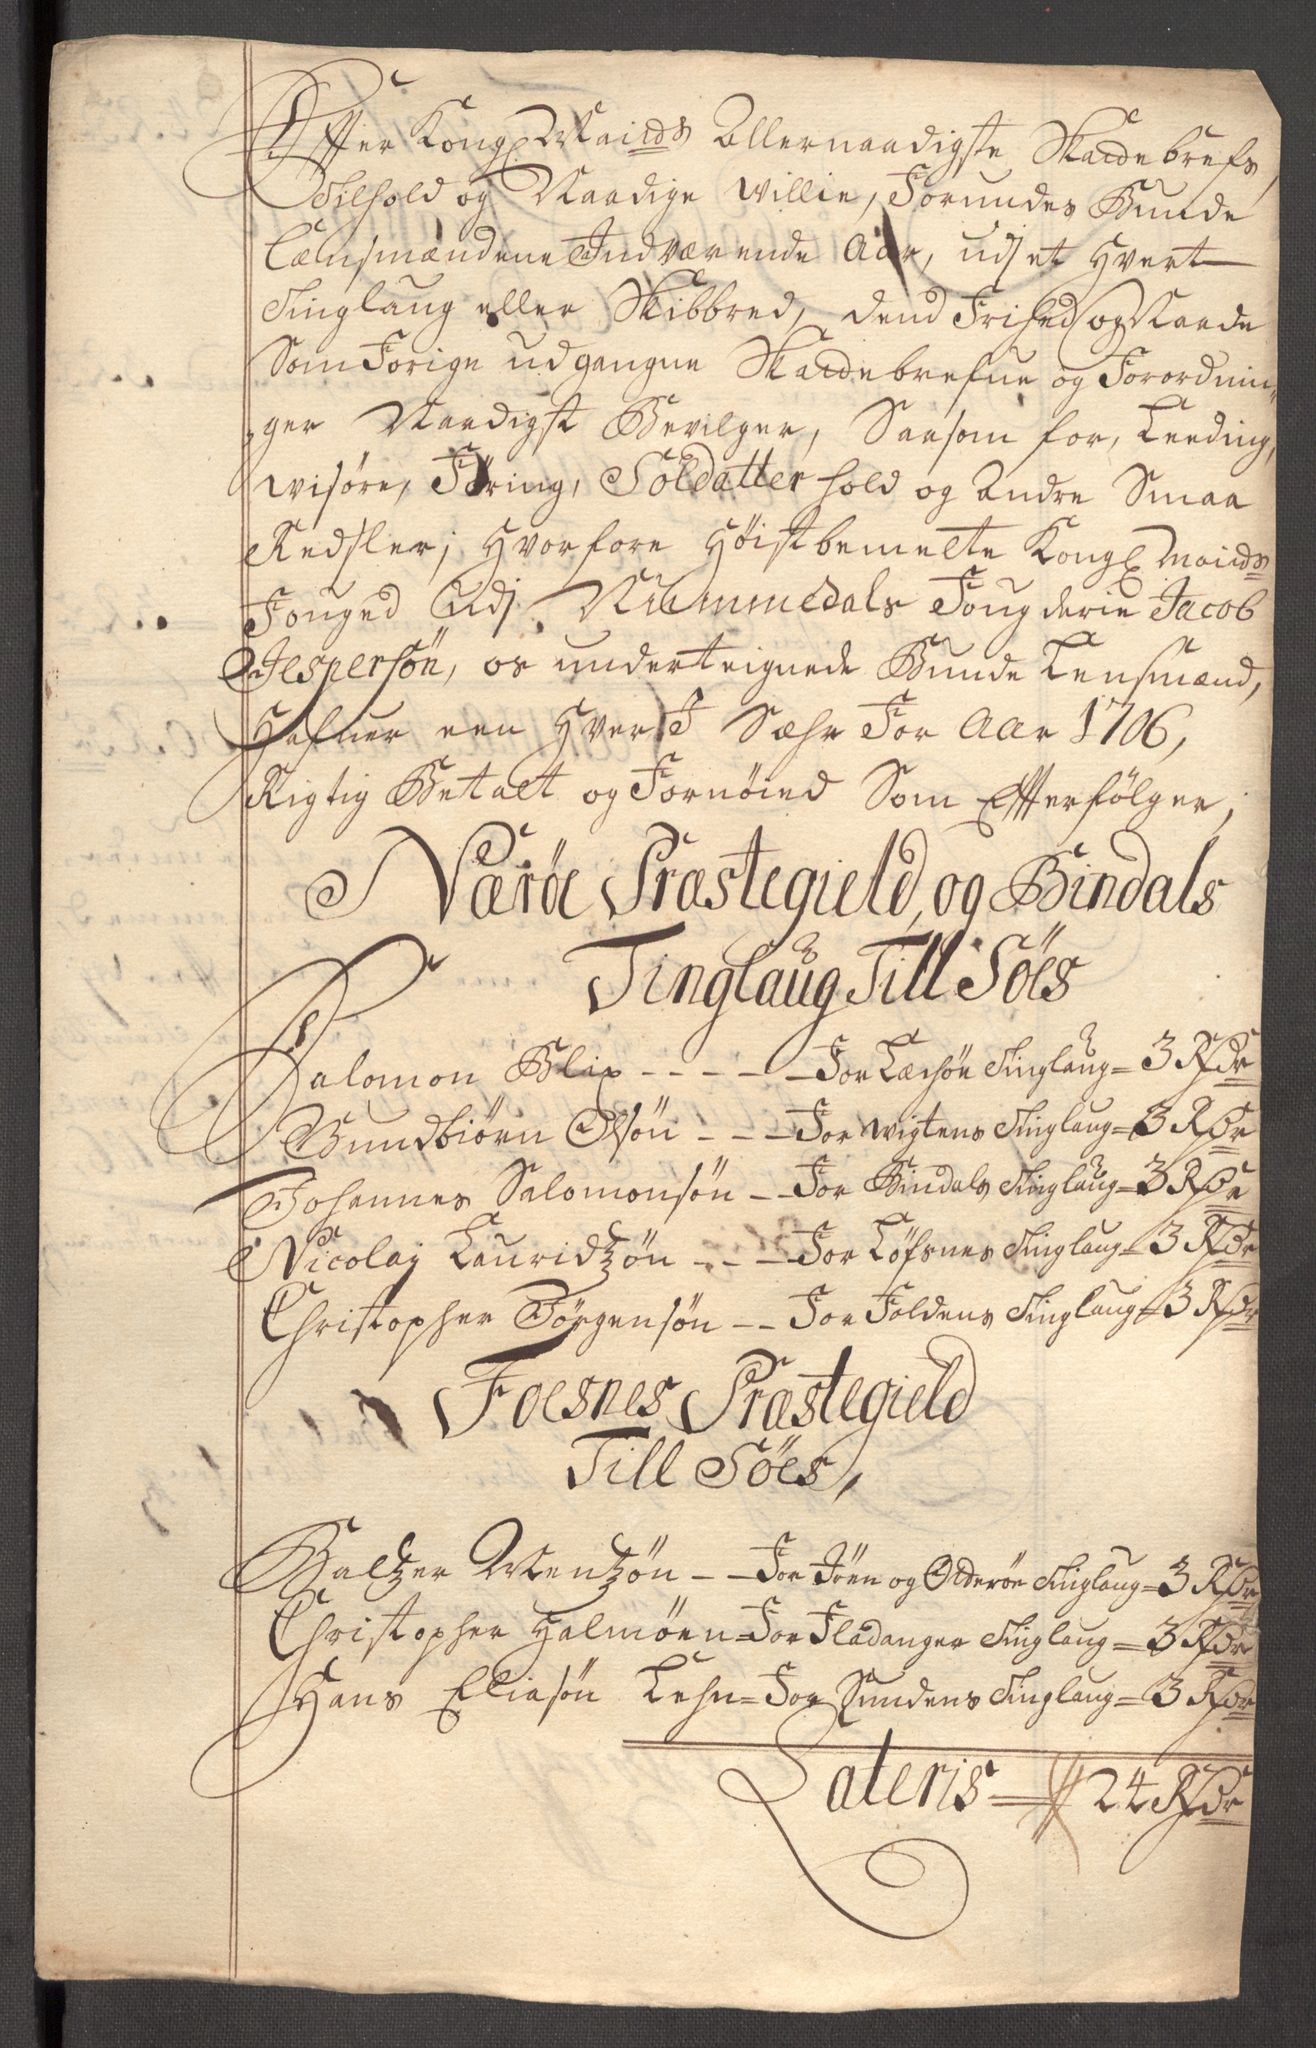 Effter Kongl Maids Allernaadigste Skattebrefs
Tilhold og Naadige Willie, Forundes Bunde
Lænsmændene Indværende Aar, udj et Hvert
Tinglaug eller Skibbred, dend Frihed og Naade
Som Forige udgangne Skattebrefue og Forordnin-
ger Naadigst Bevilger, Saasom for, Leeding,
wisøre, Føring, Soldatterhold og Andre Smaa
Redsler; Hvorfore Høistbemelte Kongl Maids
Fouged Udj Nummedals Fougderie Jacob
Jespersön, os underteignede Bunde Lensmænd,
Hafuer een Hver J Sæhr For Aar 1706,
Rigtig Betalt og Fornøied Som Effterfölger;
Nærøe Præstegield, og Bindals
Tinglaug Till Söes
Salomon Blix - - - - - For Leehön Tinglaug = 3 Rdr
Gundbiörn Olsön - - - For Wigtens Tinglaug = 3 Rdr
Johannes Salomonsön - - For Bindals Tinglaug = 3 Rdr
Nicolay Lauridtzön - - - For Löfsnes Tinglaug = 3 Rdr
Christopher Jörgensön - - For Foldens Tinglaug = 3 Rdr
Foesnes Præstegield
Till Söes,
Baltzer Mentzön - - For Jöen og Otterøe Tinglaug = 3 Rdr
Christopher Halmöen = For Fladanger Tinglaug = 3 Rdr
Hans Eliasön Lehn = For Sundens Tinglaug = 3 Rdr
Lateris = 24 Rdr